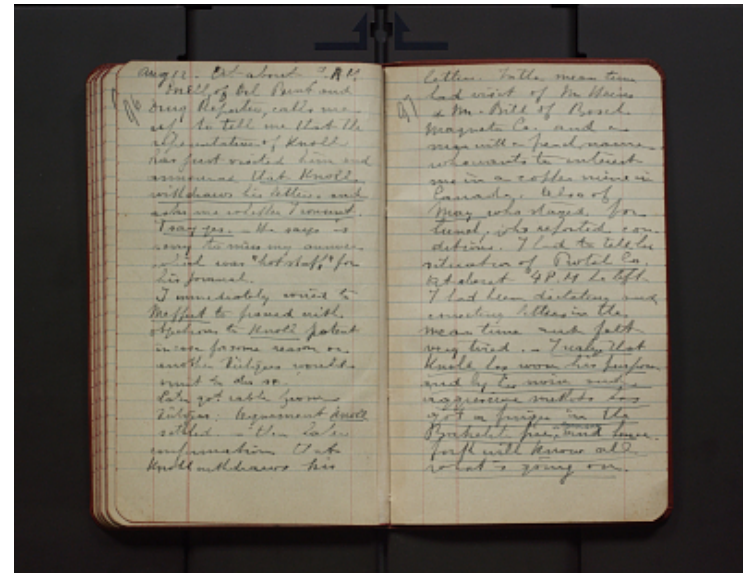 Aug 12. At about 7 A.M.
96
of Oil Paint and
Drug Reporter, calls me
up to tell me that the
representative of Knoll
has just visited him and
announced that Knoll
withdraws his letter, and
asks me whether I consent.
I say yes. - He says is
sorry to miss my answer
which was "hot stuff" for
his journal.
I immediately wired to
Moffat to proceed with
objections to Knoll patent
in case for some reason or
another Vietges would
omit to do so.
Later got cable from
Vietges: Agreement Knoll
settled. - Then later
confirmation that
Knoll withdraws his
97
letter. In the mean time
had visit of Mr Heins
& Mr. Bill of Bosch
Magneto Co. and a
man with a french name
who wants to interest
me in a copper mine in
Canada. Also of
May who stayed for
lunch, who reported con-
ditions. I had to tell him
situation of Protal Co.
At about 4 P.M he left
I had been dictating and
correcting letters in the
mean time and felt
very tired. - I realize that
Knoll has won his purpose
and by his noise and
aggressive methods has
got a finger in the
Bakelite pie, and hence-
forth will know all
what's going on.